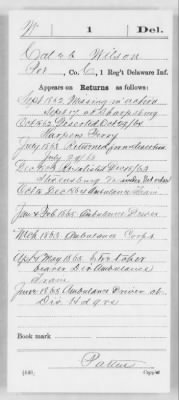 W | 1 | Del.
Caleb Wilson
Pvt, Co. C, 1 Reg't Delaware Inf.
Appears on Returns as follows:
Sept 1862 Missing in action
Sept 17 at Sharpsburg
Oct 1862 Deserted Oct
Harpers Ferry
July 1863 Returned from desertion
July 29/63
Dec 1863 Reenlisted Dec
Oct & Dec 1864 Ambulance Train
Jan & Feb 1865 Ambulance Driver
Mch 1865 Ambulance Corps
Apr & May 1865 Stretcher
bearer Div Ambulance
Train
June 1865 Ambulance Driver at
Div. Hdqrs
Book mark:
(546)
Copyist.